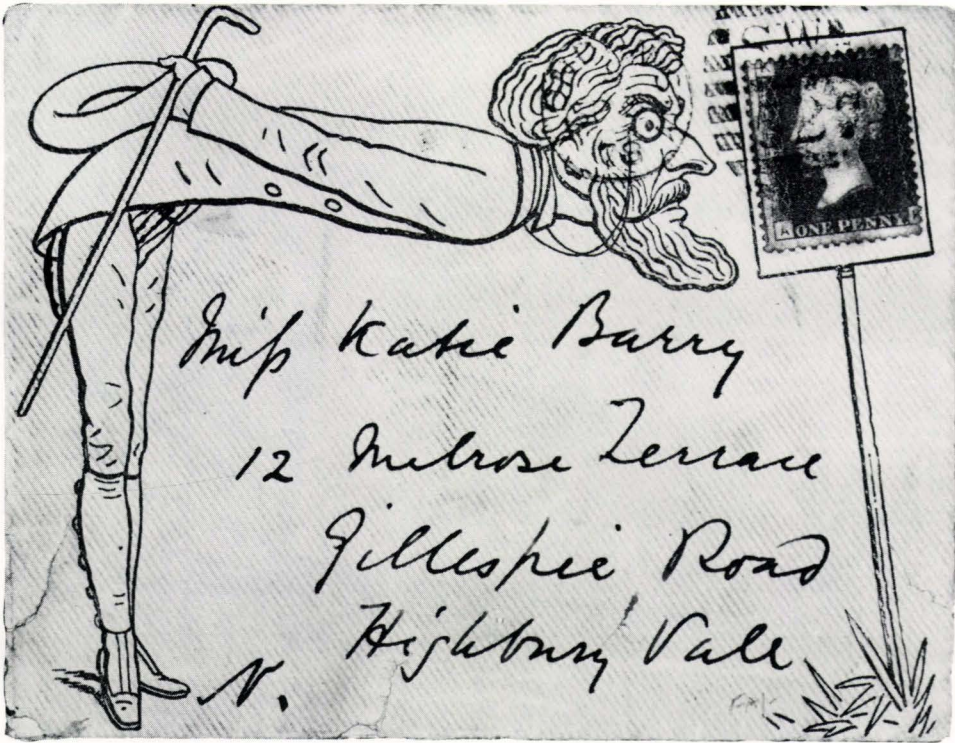 SW
ONE PENNY
Miss Katie Barry
12 Melrose Terrace
Gillespie Road
Highbury Vale
N.